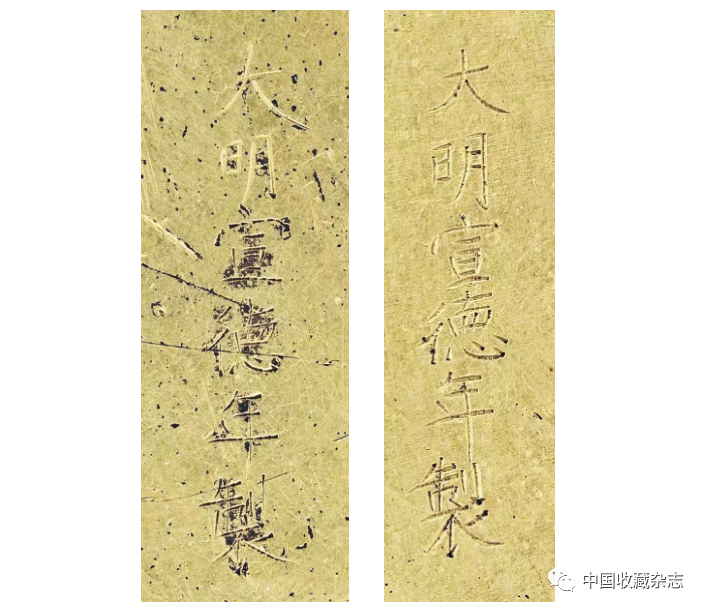 大明宣德年製
大明宣德年製
中国收藏杂志